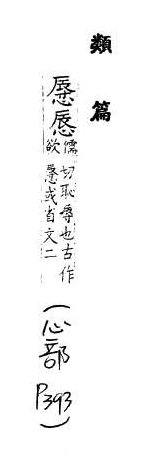 類篇
儒欲
切恥辱也古作
或省文二
(心部
P393)